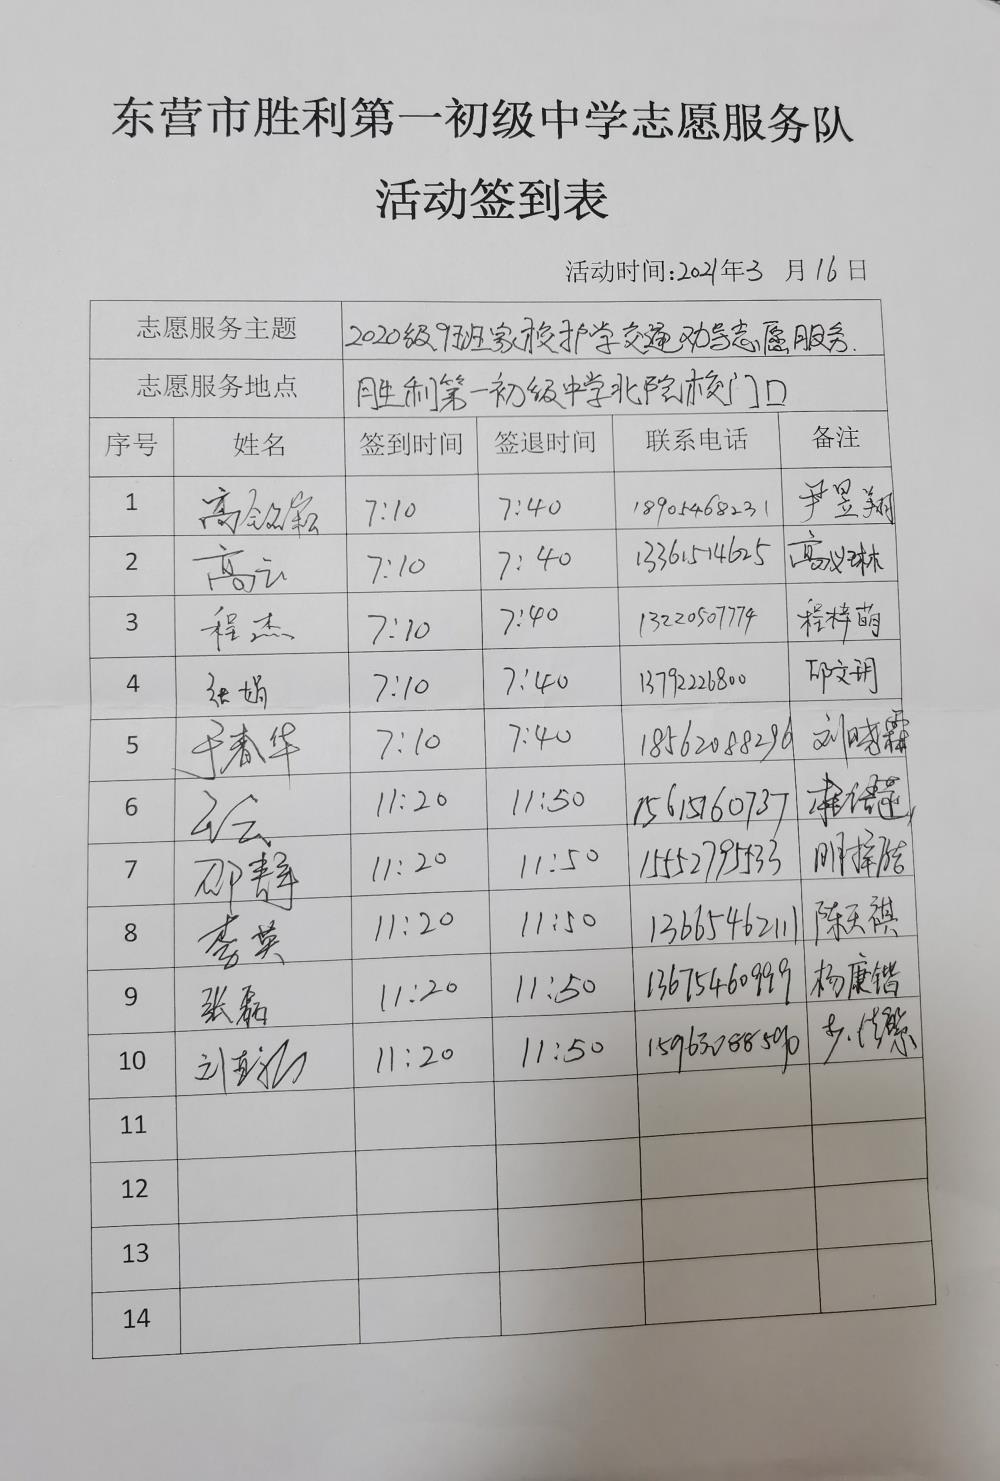 东营市胜利第一初级中学志愿服务队
活动签到表
活动时间:2021年3 月16日
志愿服务主题 2020级9班家校护学交通劝导志愿服务.
志愿服务地点 胜利第一初级中学北院校门口
序号 姓名 签到时间 签退时间 联系电话 备注
1 7:10 7:40 18905468231 尹昱翔
2 高云 7:10 7:40 13361514625 高议琳
3 程杰 7:10 7:40 13220507774 程梓萌
4 张娟 7:10 7:40 13792226800 邱文玥
5 于春华 7:10 7:40 18562088296 刘晓霖
6 11:20 11:50 15615160737
7 邵静 11:20 11:50 15552795533 明择皓
8 李英 11:20 11:50 13665462111 陈天祺
9 张磊 11:20 11:50 13675460999 杨康锴
10 11:20 11:50
11
12
13
14